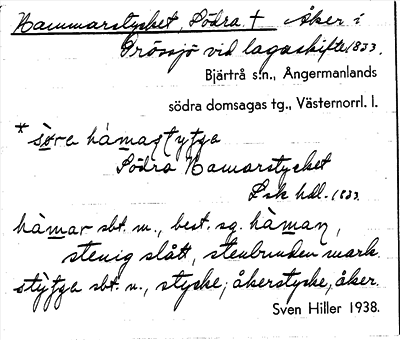 Hammarstycket, Södra † Åker i
Prässjö vid lagaskifte 1833.
Bjärtrå s:n., Ångermanlands
södra domsagas tg., Västernorrl. l.
* sö̀ra hàmastytga
Södra Hamarstycket
Lsk hdl. 1833.
hàmar sbt. m., best. sg. hàman,
stenig slått, stenbunden mark.
stỳtga sbt. n., stycke; åkerstycke, åker.
Sven Hiller 1938.